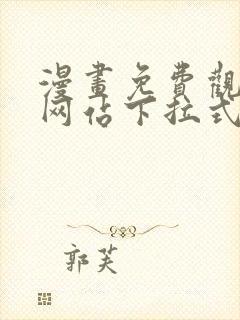 漫畫免費觀
网佔下拉式
郭芙